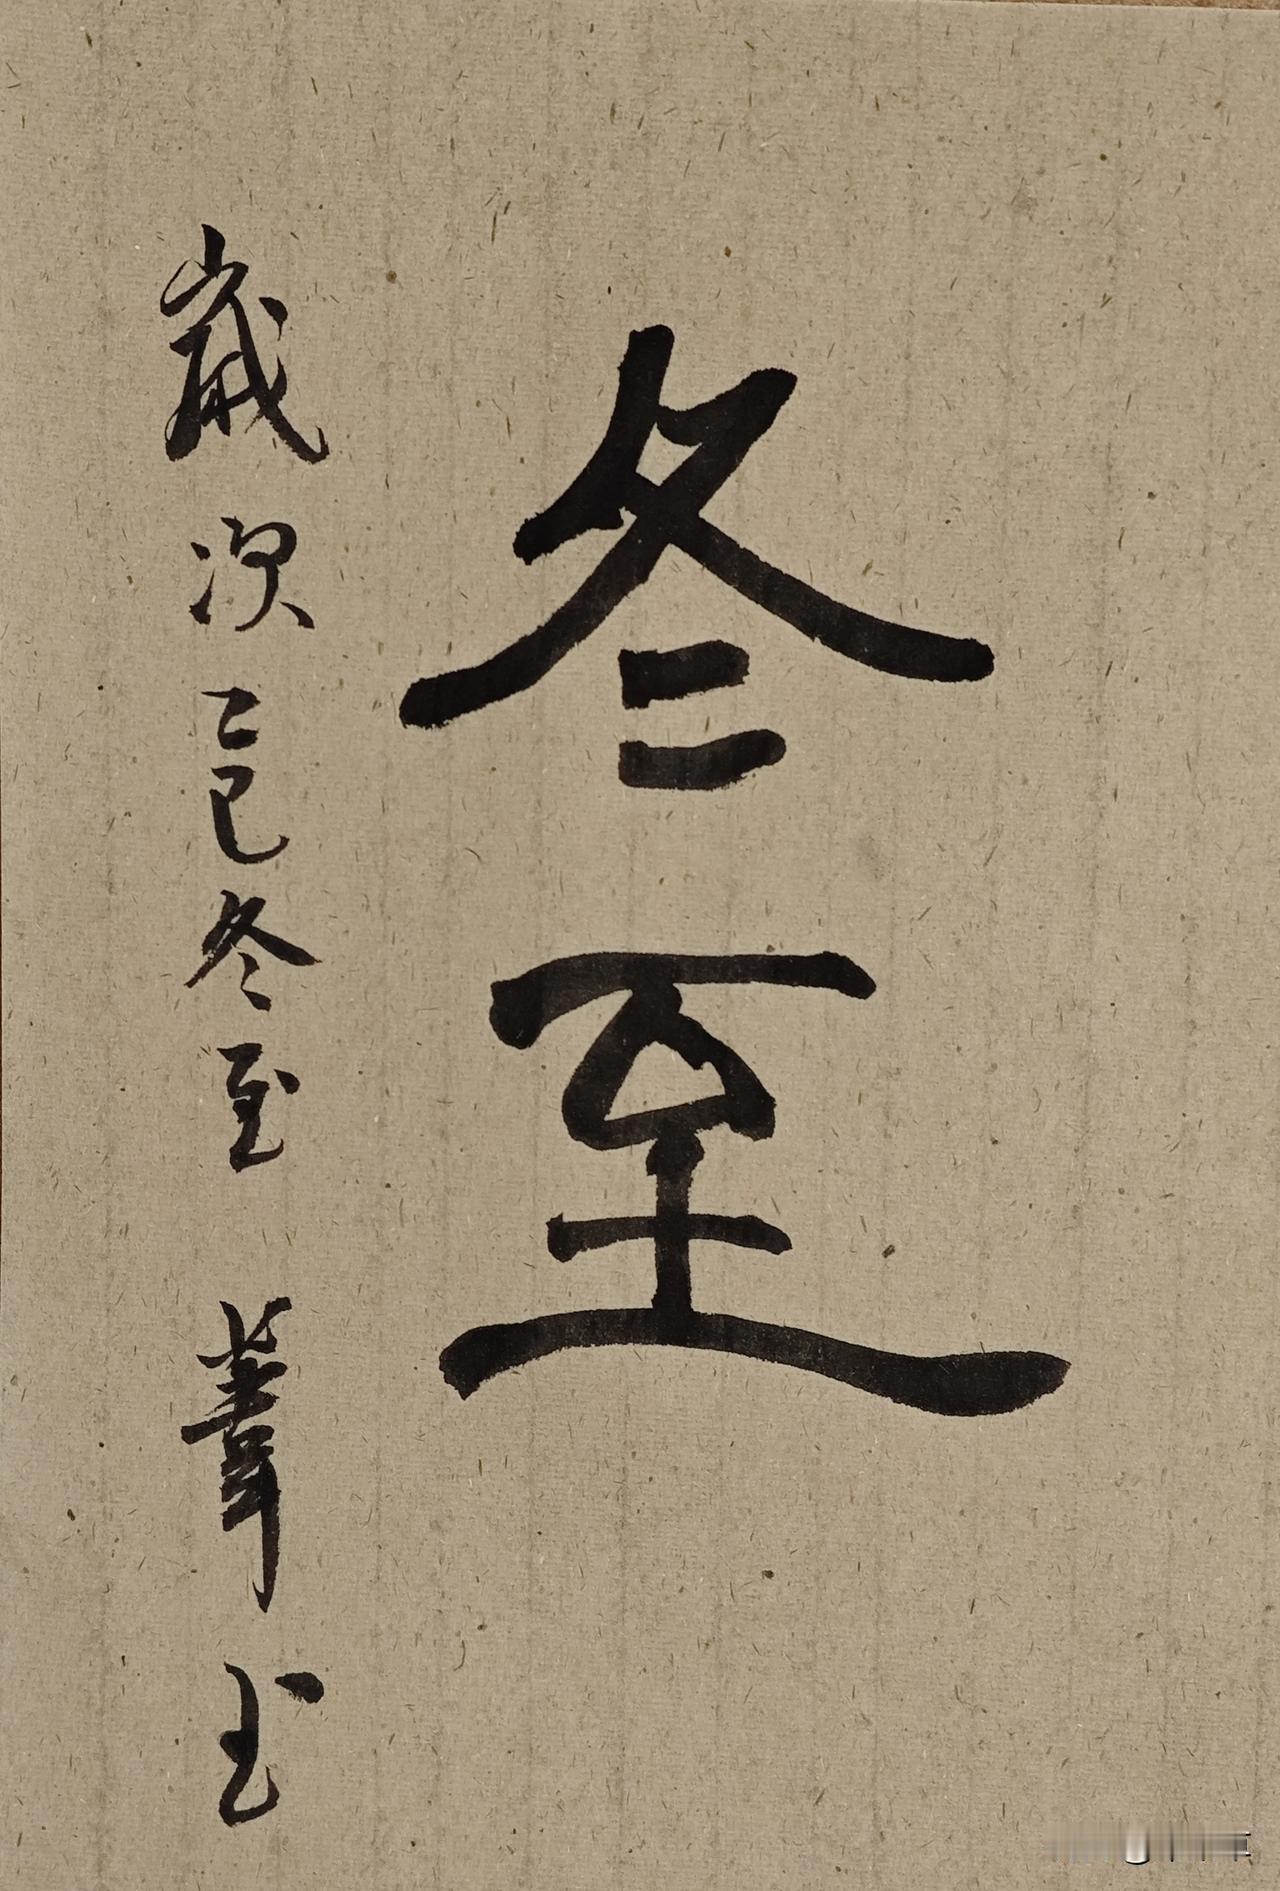 冬至
歲次乙巳冬至 葦 书